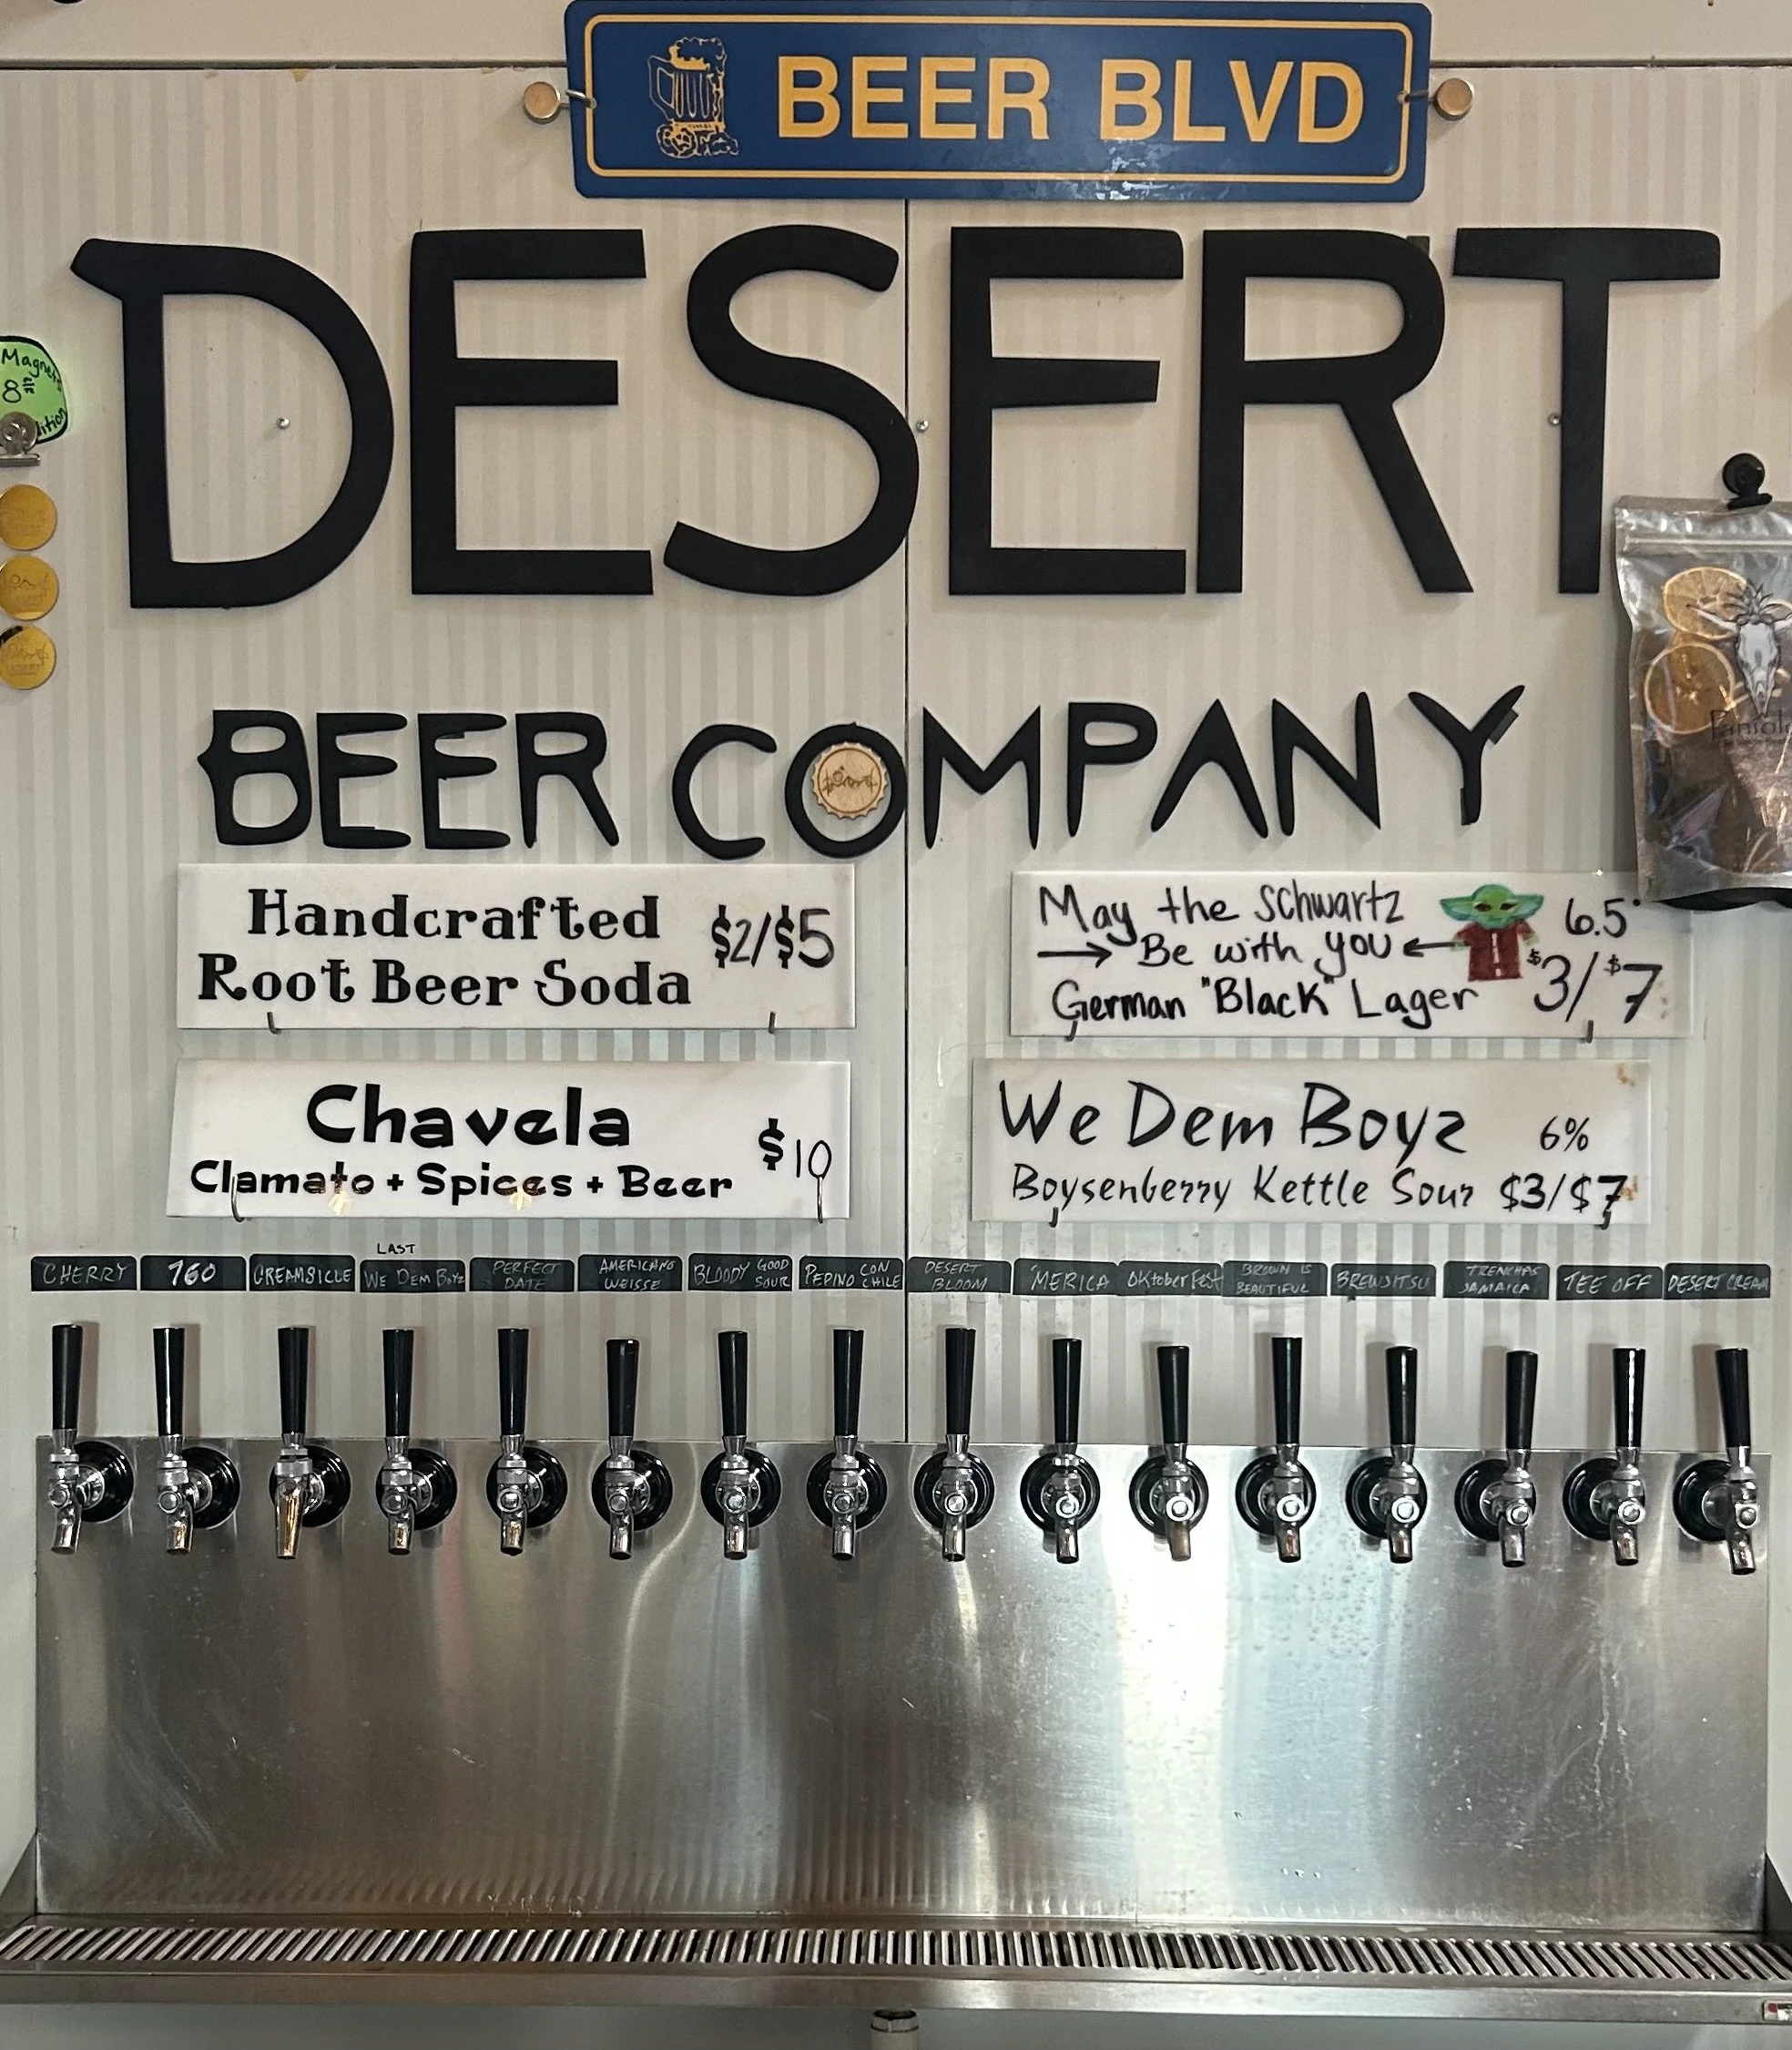 BEER BLVD
DESERT
BEER COMPANY
Magnet
8
Handcrafted
Root Beer Soda
$2/$5
May the Schwartz
→ Be with you ←
German "Black" Lager
6.5
$3/$7
Chavela
Clamato + Spices + Beer
$10
We Dem Boyz
6%
Boysenberry Kettle Sour $3/$7
CHERRY
760
CREAMSICLE
LAST
WE DEM BOYZ
PERFECT
DATE
AMERICANO
WEISSE
BLOODY GOOD
SOUR
PEPINO CON
CHILE
DESERT
BLOOM
'MERICA
OKtoberFest
BROWN IS
BEAUTIFUL
BREWJITSU
TRENCHAS
JAMAICA
TEE OFF
DESERT CREAM